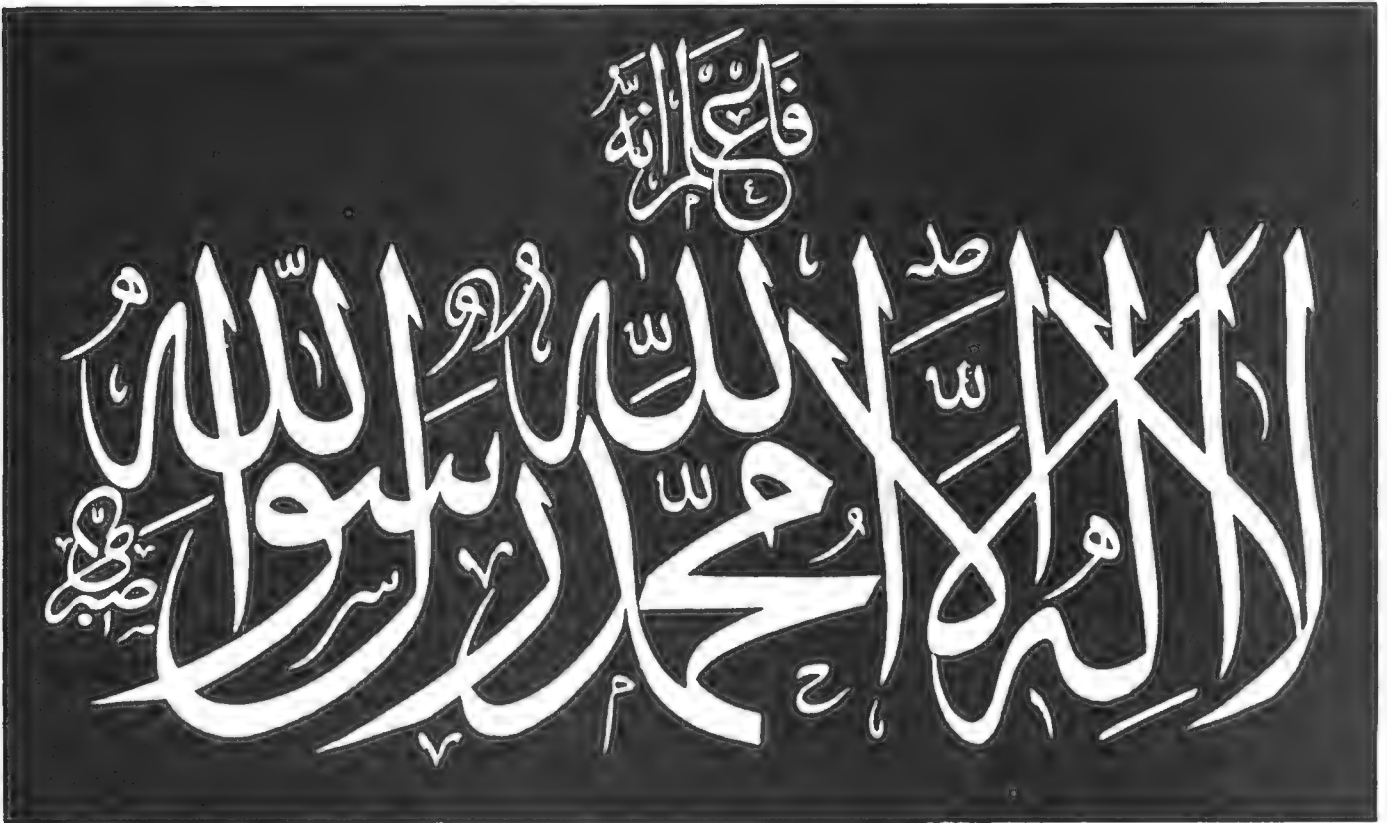 فَاعْلَمْ أَنَّهُ
لَا إِلٰهَ إِلَّا اللّٰهُ مُحَمَّدٌ رَسُولُ اللّٰهِ